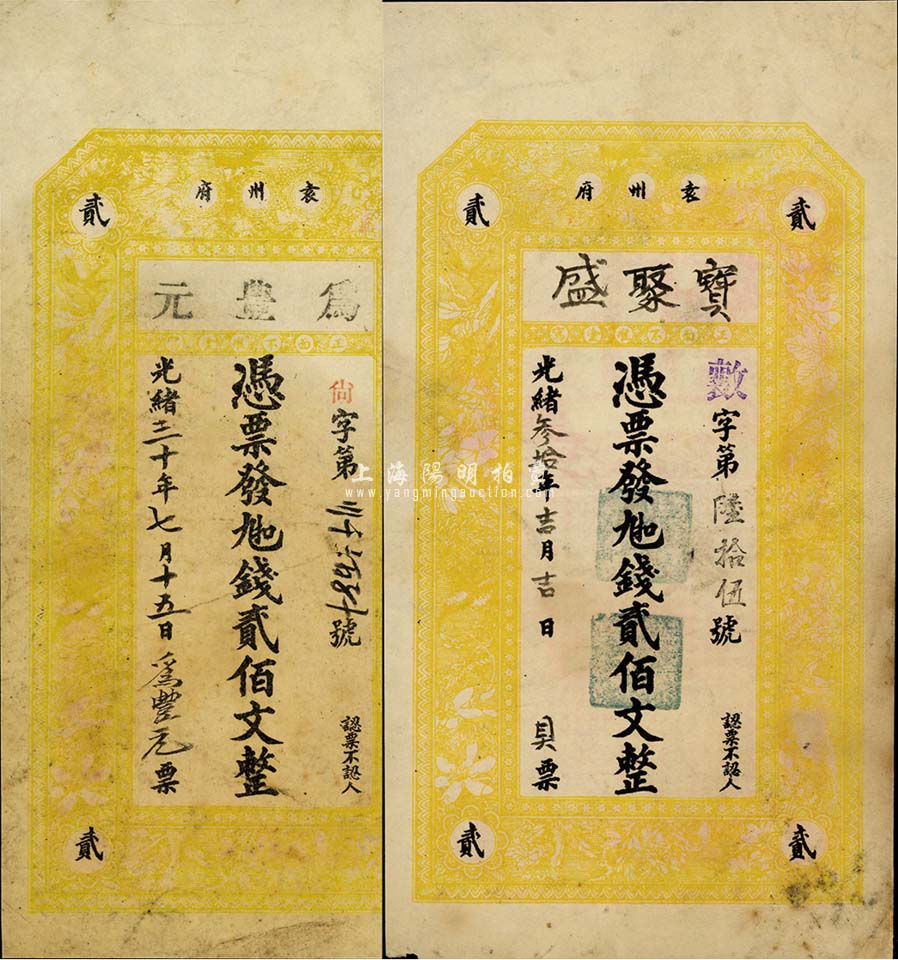 袁州府
貳
為豐元
正面不准重寫
尙字第三千六百八十號
憑票發足錢貳佰文整
光緒三十年七月十五日為豐元票
認票不認人
貳
袁州府
貳
貳
寶聚盛
數字第陸拾伍號
憑票發足錢貳佰文整
光緒叁拾年吉月吉日具票
認票不認人
貳
貳
上海陽明拍賣
www.yangmingauction.com